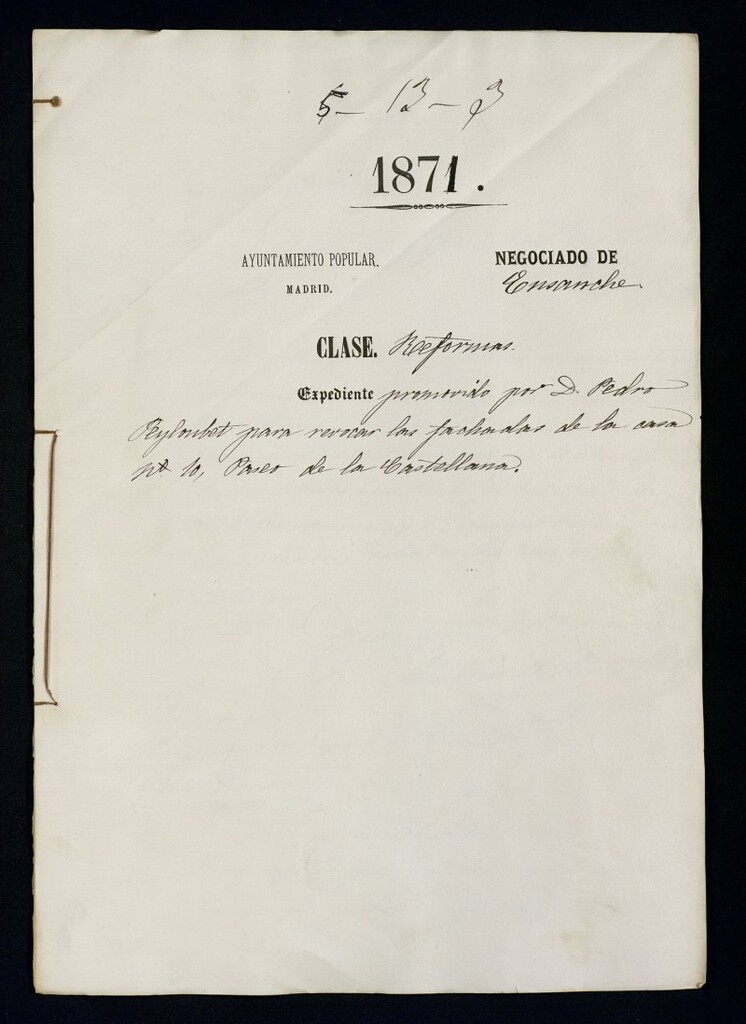 5-13-3
1871.
AYUNTAMIENTO POPULAR.
MADRID.
NEGOCIADO DE
Ensanche.
CLASE. Reformas.
Expediente promovido por D. Pedro
para revocar las fachadas de la casa
nº 10, Paseo de la Castellana.